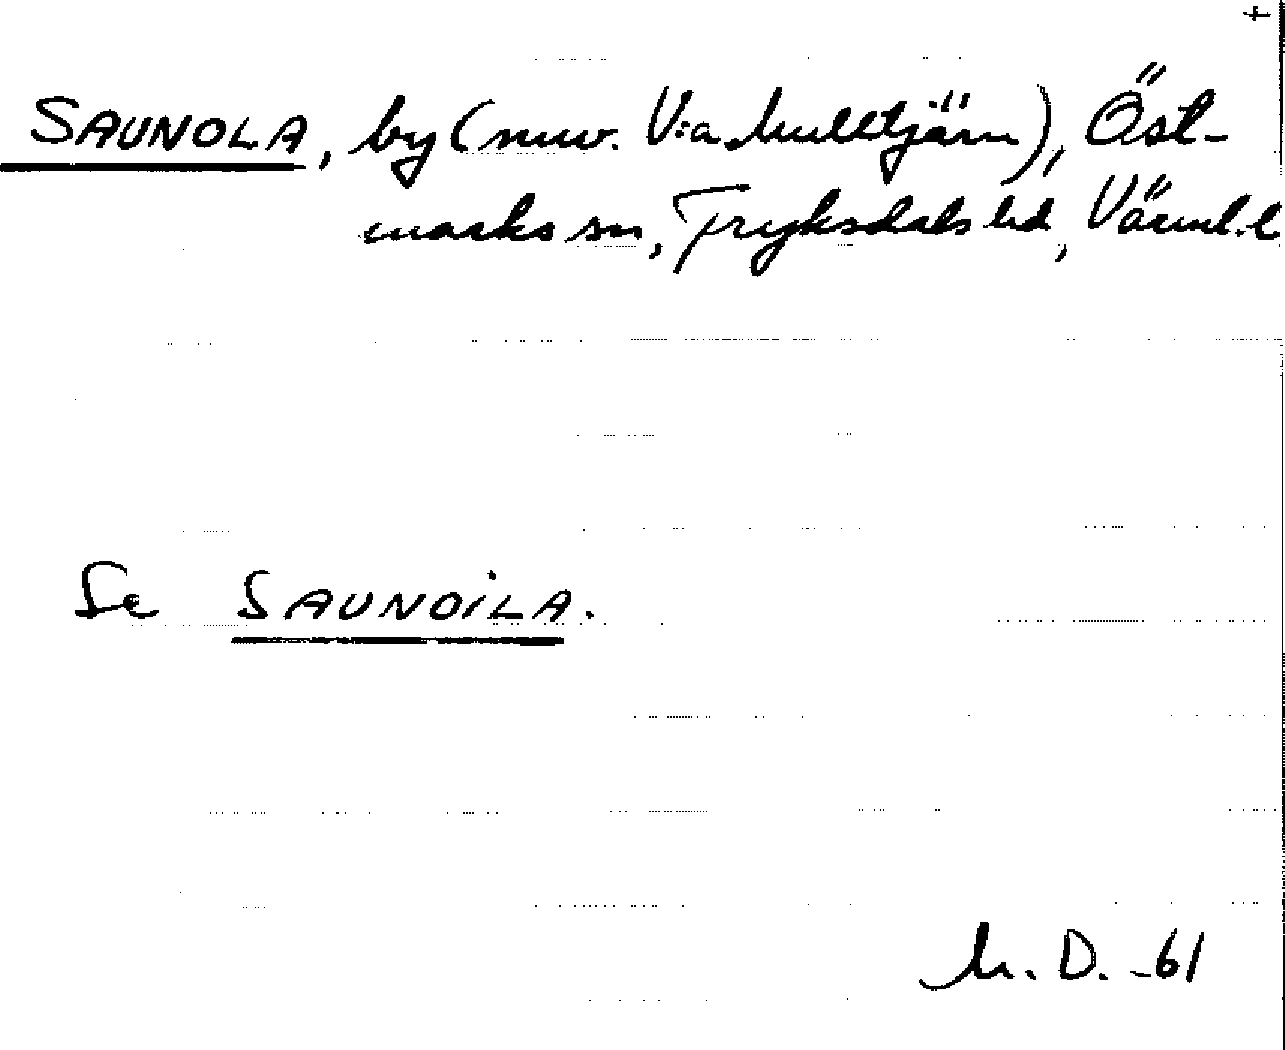 SAUNOLA, by (nuv. V:a Mulltjärn), Öst-
marks sn, Fryksdals hd, Värml. l
Se SAUNOILA.
M. D. -61